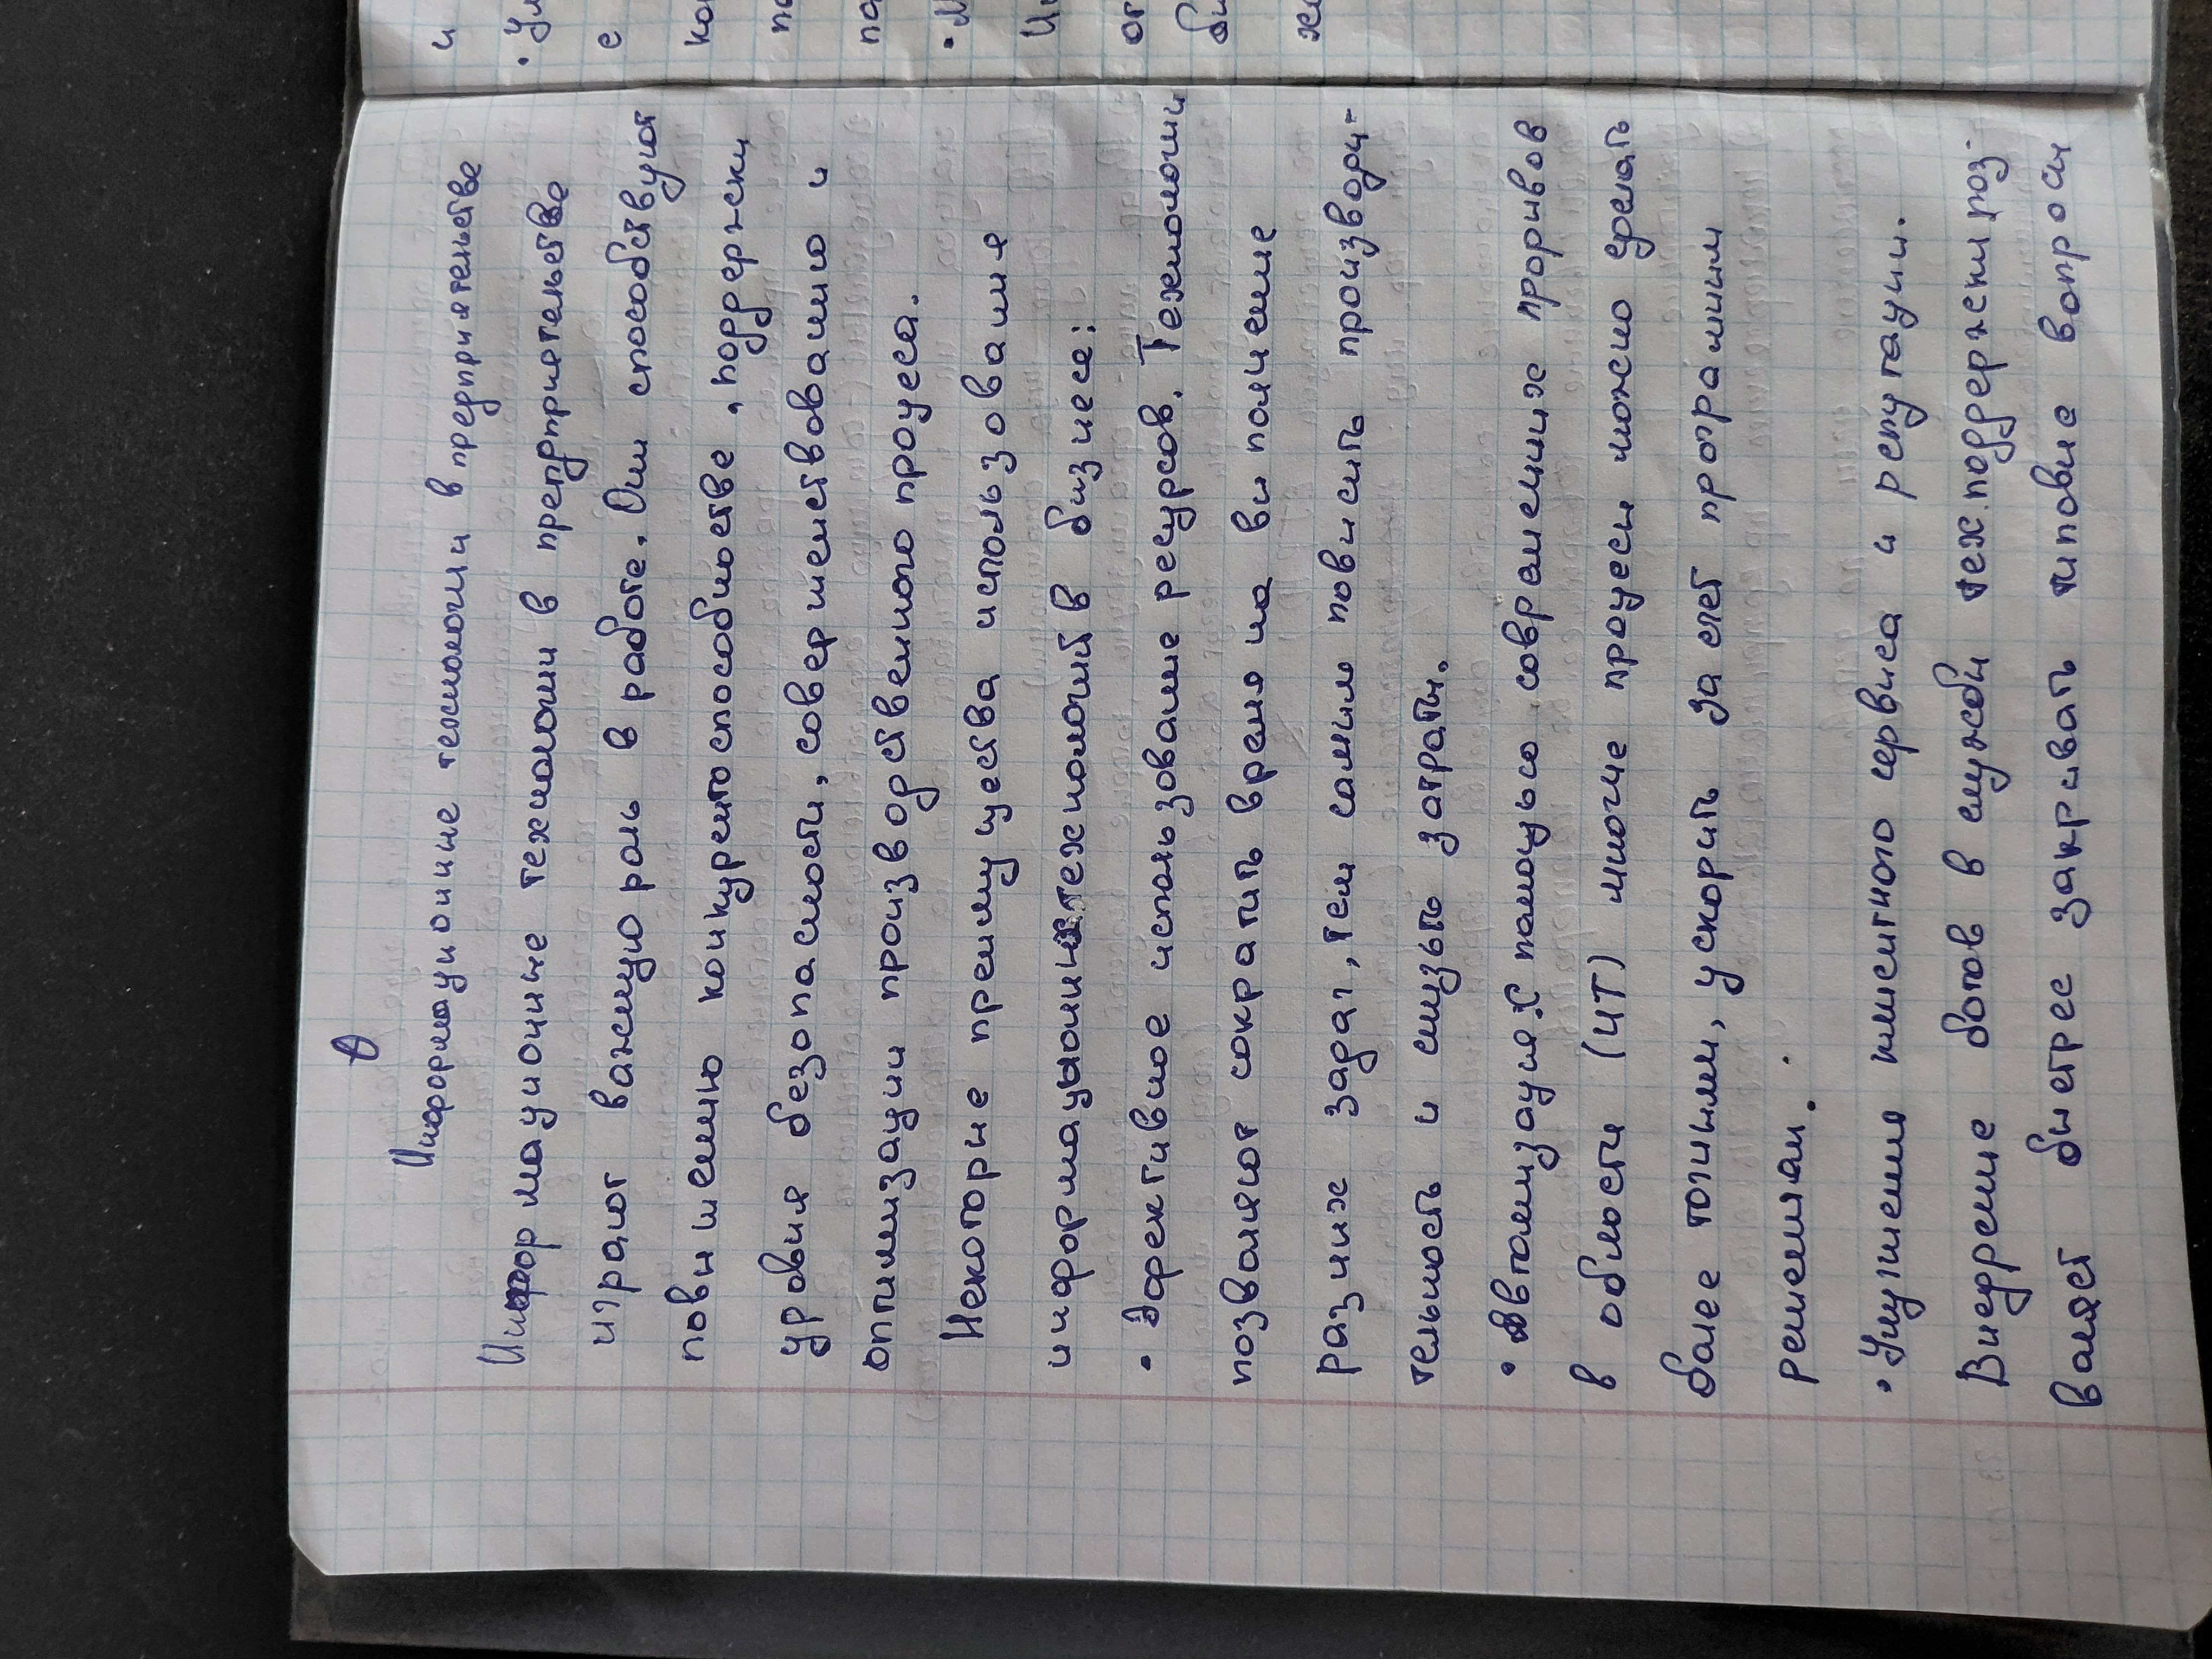 Информационные технологии в предприятеньстве
Информационые технологии в предпринетельстве
играют важную роль в работе. Они способствуют
повышению конкурентоспособностве, поддержки
уровня безопасности, совершенствованию и
оптимизации производственного процеса.
Некоторые премущества использования
информационых технологий в бизнесе:
• Эфективное использование ресурсов. Технологии
позволяют сократить время на выполнение
разных задач, тем самым повысить производи-
тельность и снизить затраты.
• Автоматизация. С помощью современных прорывов
в области (ИТ) многие процесы можно сделать
более точными, ускорить за счет програмным
решениям.
• Улутшения клиентного сервиса и репутации.
Внедрение ботов в службы техподдержки поз-
валяет быстрее закрывать типовые вопросы